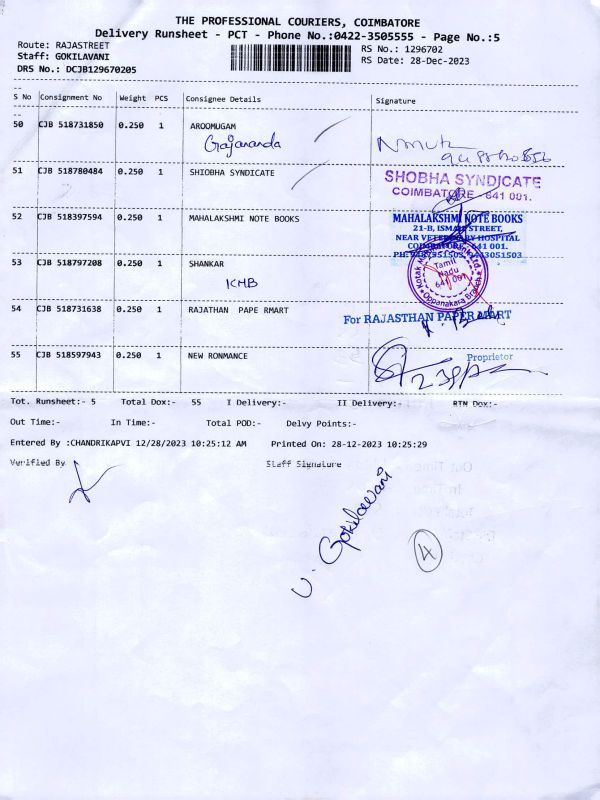 THE PROFESSIONAL COURIERS, COIMBATORE
Delivery Runsheet - PCT - Phone No.:0422-3505555 - Page No.:5
Route: RAJASTREET RS No.: 1296702
Staff: GOKILAVANI RS Date: 28-Dec-2023
DRS No.: DCJB129670205
S No Consignment No Weight PCS Consignee Details Signature
50 CJB 518731850 0.250 1 AROOMUGAM
Gajananda
51 CJB 518780484 0.250 1 SHIOBHA SYNDICATE
SHOBHA SYNDICATE
COIMBATORE - 641 001.
52 CJB 518397594 0.250 1 MAHALAKSHMI NOTE BOOKS
MAHALAKSHMI NOTE BOOKS
21-B, ISMAIL STREET,
NEAR VETERINARY HOSPITAL
COIMBATORE - 641 001.
53 CJB 518797208 0.250 1 SHANKAR
KMB
Tamil
Nadu
641 001
Oppanakara Branch
54 CJB 518731638 0.250 1 RAJATHAN PAPE RMART
For RAJASTHAN PAPER MART
55 CJB 518597943 0.250 1 NEW RONMANCE
Proprietor
Tot. Runsheet:- 5 Total Dox:- 55 I Delivery:- II Delivery:- RTN Dox:-
Out Time:- In Time:- Total POD:- Delvy Points:-
Entered By :CHANDRIKAPVI 12/28/2023 10:25:12 AM Printed On: 28-12-2023 10:25:29
Verified By Staff Signature
V. Gokilavani
4